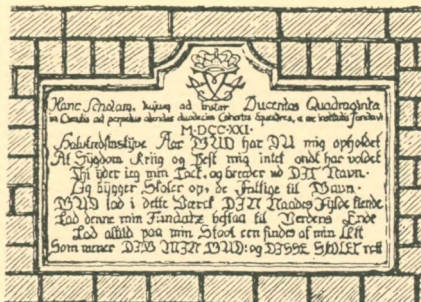 Hanc Scholam, hujus ad instar Ducentas Quadraginta
in Circulis ad perpetuo alendas duodecim Cohortes Equestres, a me institutis fundavi
M·DCC·XXI·
Halvtredsinstyve Aar GUD har DU mig opholdet
At Sygdom Kriig og Pest mig intet ondt har voldet
Thi yder ieg min Tack, og breeder ud DIT Navn.
Og bygger Skoler op, de Fattige til Gavn.
GUD lad i dette Værck DIN Naades Fylde kiende
Lad denne min Fundatz bestaa til Verdens Ende
Lad altid paa min Stool een findes af min Æett
Som mener DIG MIN GUD: og DISSE SKOLER rett